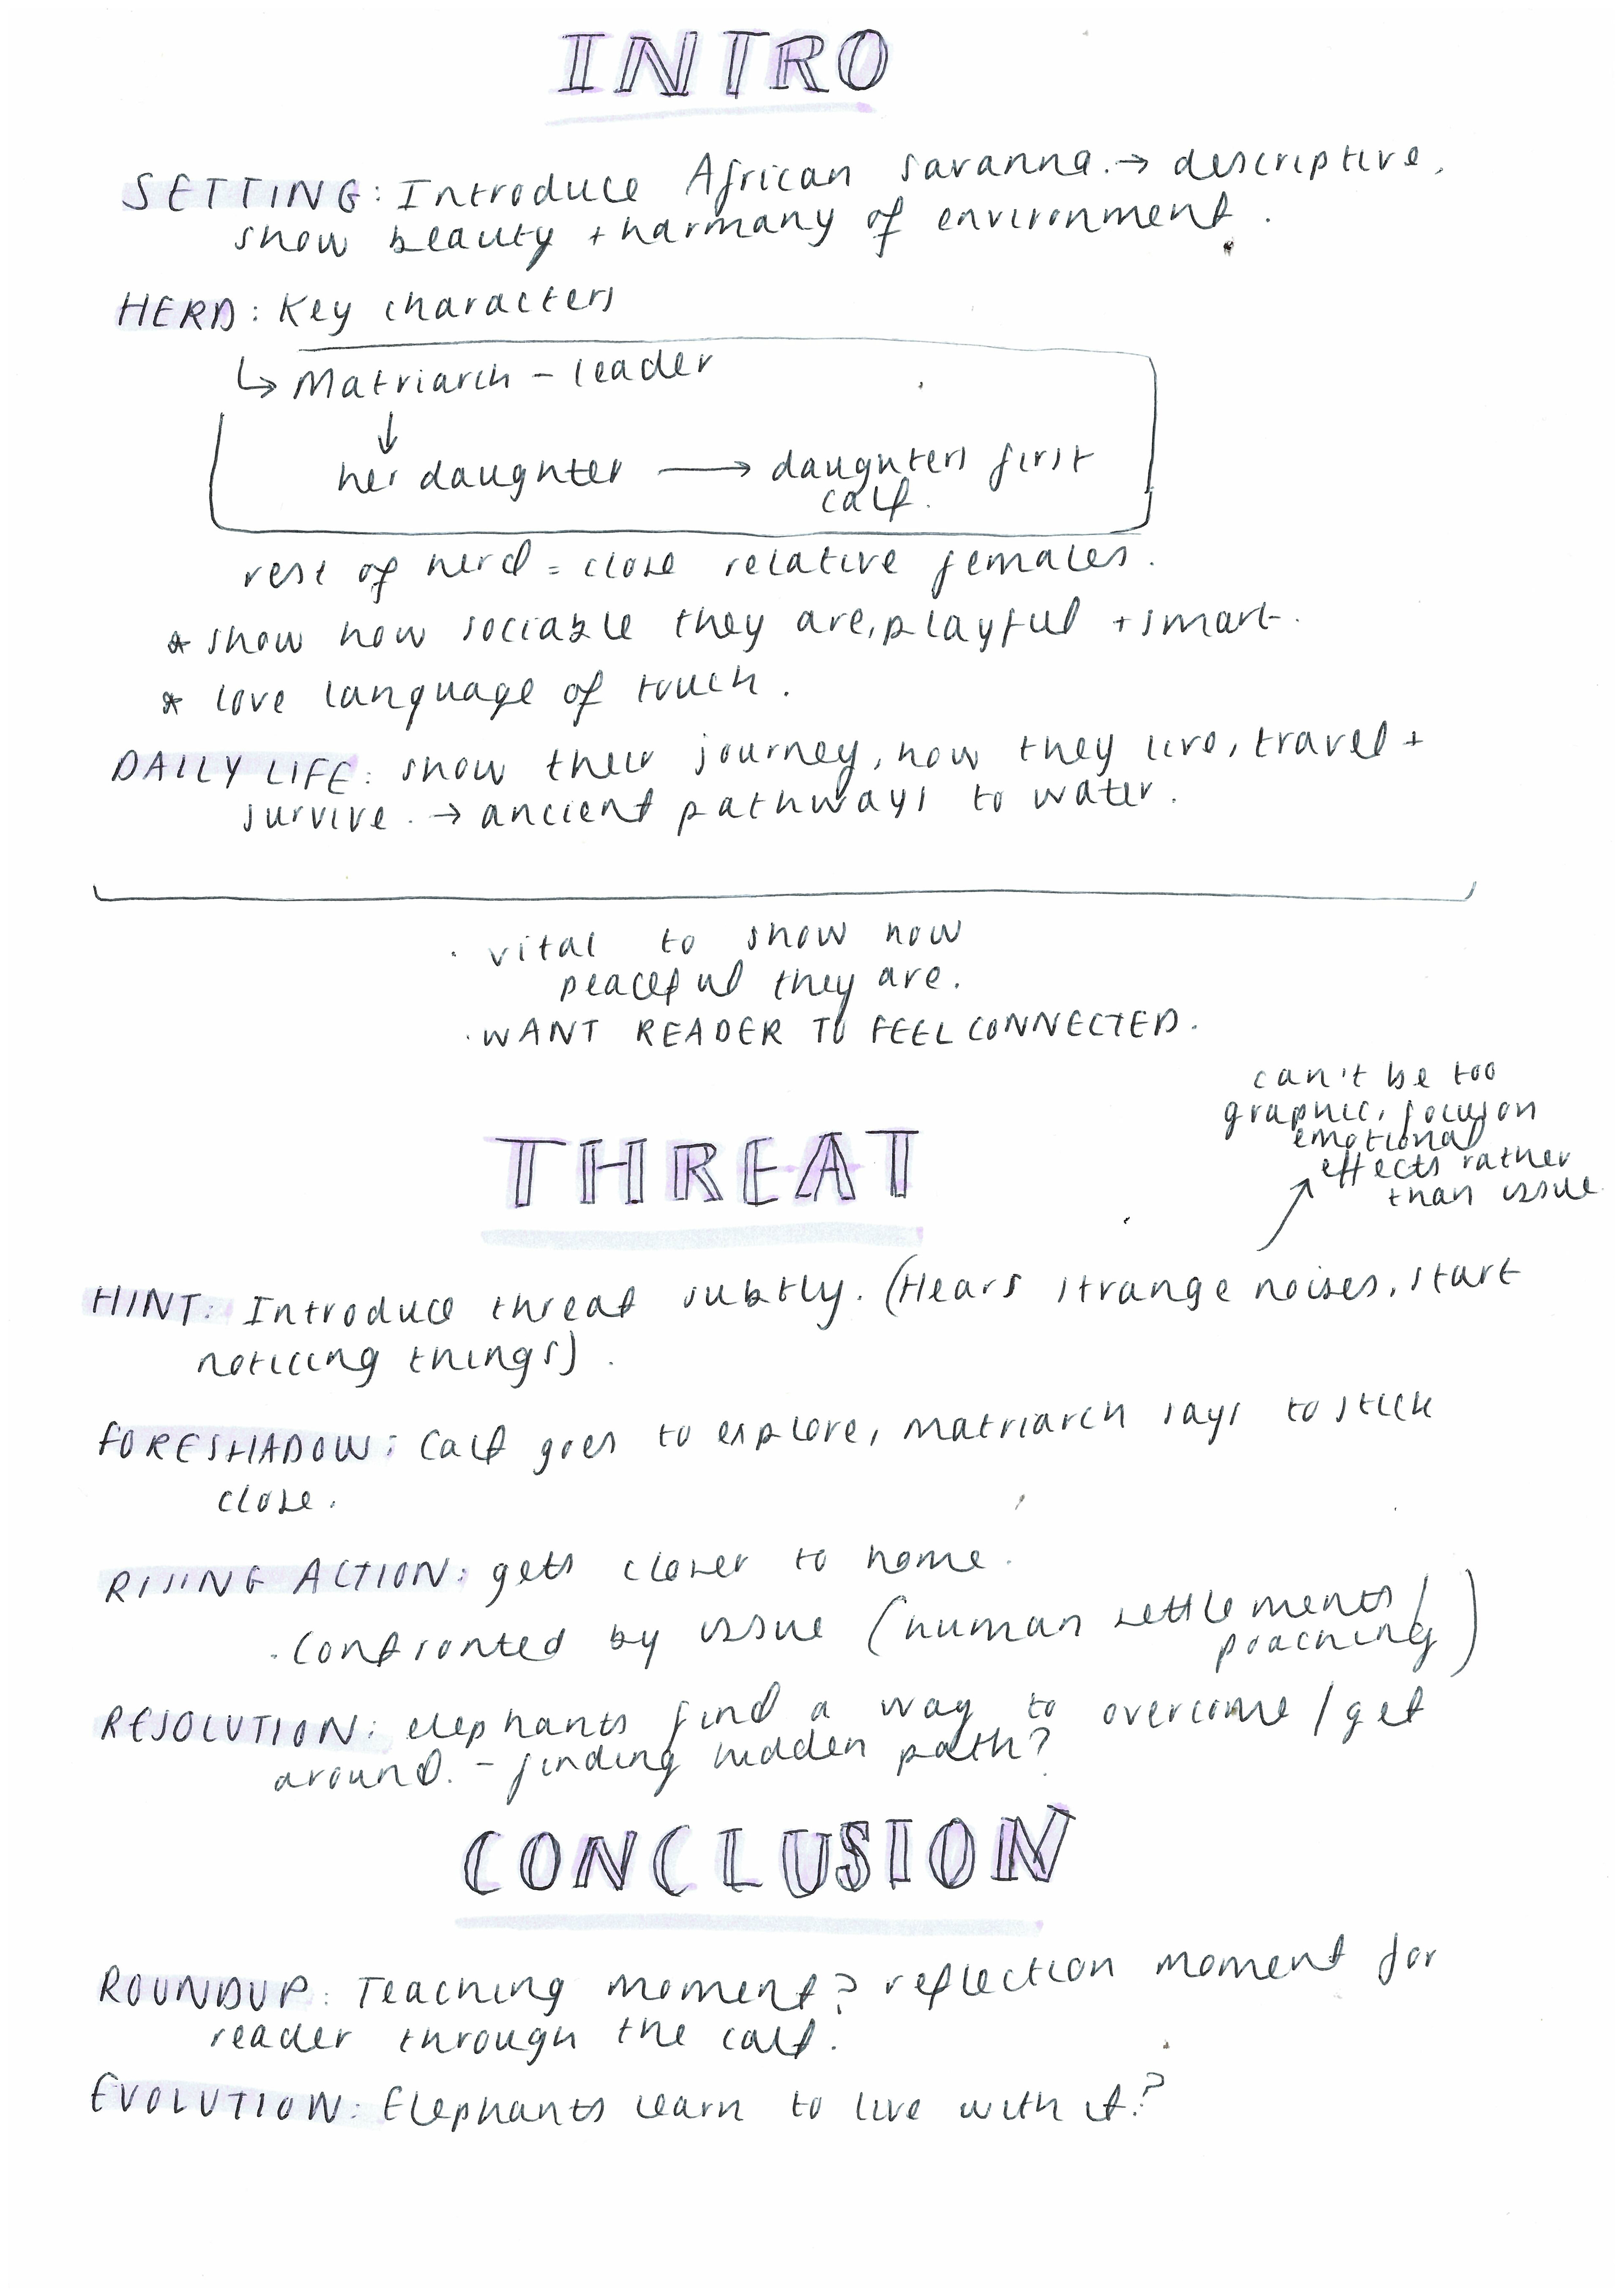 INTRO
SETTING: Introduce African savanna. → descriptive,
show beauty + harmany of environment.
HERD: Key characters
↳ Matriarch - leader
↓
her daughter → daughters first
calf.
rest of herd = close relative females.
* show how sociable they are, playful + smart.
* love language of touch.
DAILY LIFE: show their journey, how they live, travel +
survive. → ancient pathways to water.
· vital to show how
peaceful they are.
· WANT READER TO FEEL CONNECTED.
can't be too
graphic, focus on
emotional
effects rather
than issue
THREAT
HINT: Introduce threat subtly. (Hears strange noises, start
noticing things).
FORESHADOW: Calf goes to explore, matriarch says to stick
close.
RISING ACTION: gets closer to home.
· Confronted by issue (human settlements/
poaching)
RESOLUTION: elephants find a way to overcome / get
around. - finding hidden path?
CONCLUSION
ROUNDUP: Teaching moment? reflection moment for
reader through the calf.
EVOLUTION: Elephants learn to live with it?